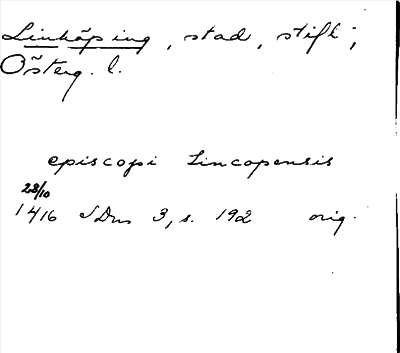 Linköping, stad, stift;
Österg. l.
episcopi Lincopensis
23/10
1416 SDns 3, s. 192 orig.